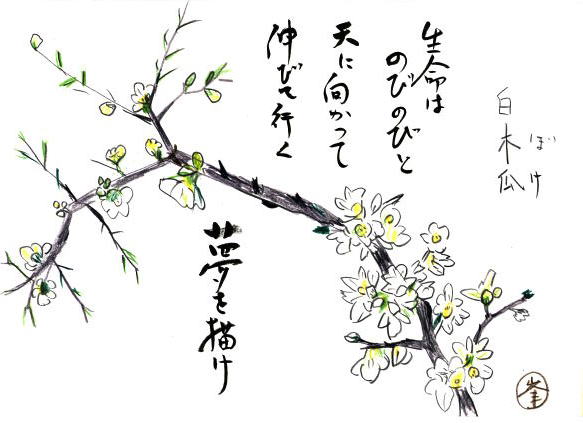 白木瓜
ぼけ
生命は
のびのびと
天に向かって
伸びて行く
夢を描け
峯